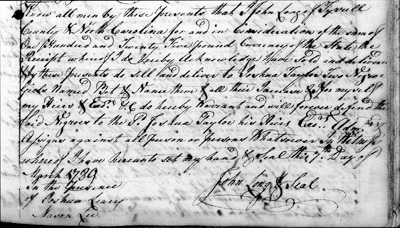 Know all men by these Presents that I John Long of Tyrrell
County & North Carolina for and in Consideration of the sum of
One Hundred and Twenty Five pound Currency of the State the
Receipt whereof I do hereby Acknowledge have Sold and delivered
& by these Presents do sell and deliver to Joshua Taylor Two Negroes
Named Pat & Name them & all their Increase & for myself
my Heirs & Exrs. &c do hereby Warrant and will forever defend the
said Negroes to the Sd. Joshua Taylor his Heirs Exrs.
Assigns against all person or persons Whatsoever In Witness
whereof I have hereunto set my hand & Seal this 7 Day of
April 1789
in the presence
of Joshua Leary
John Long & Seal
Mason Lee